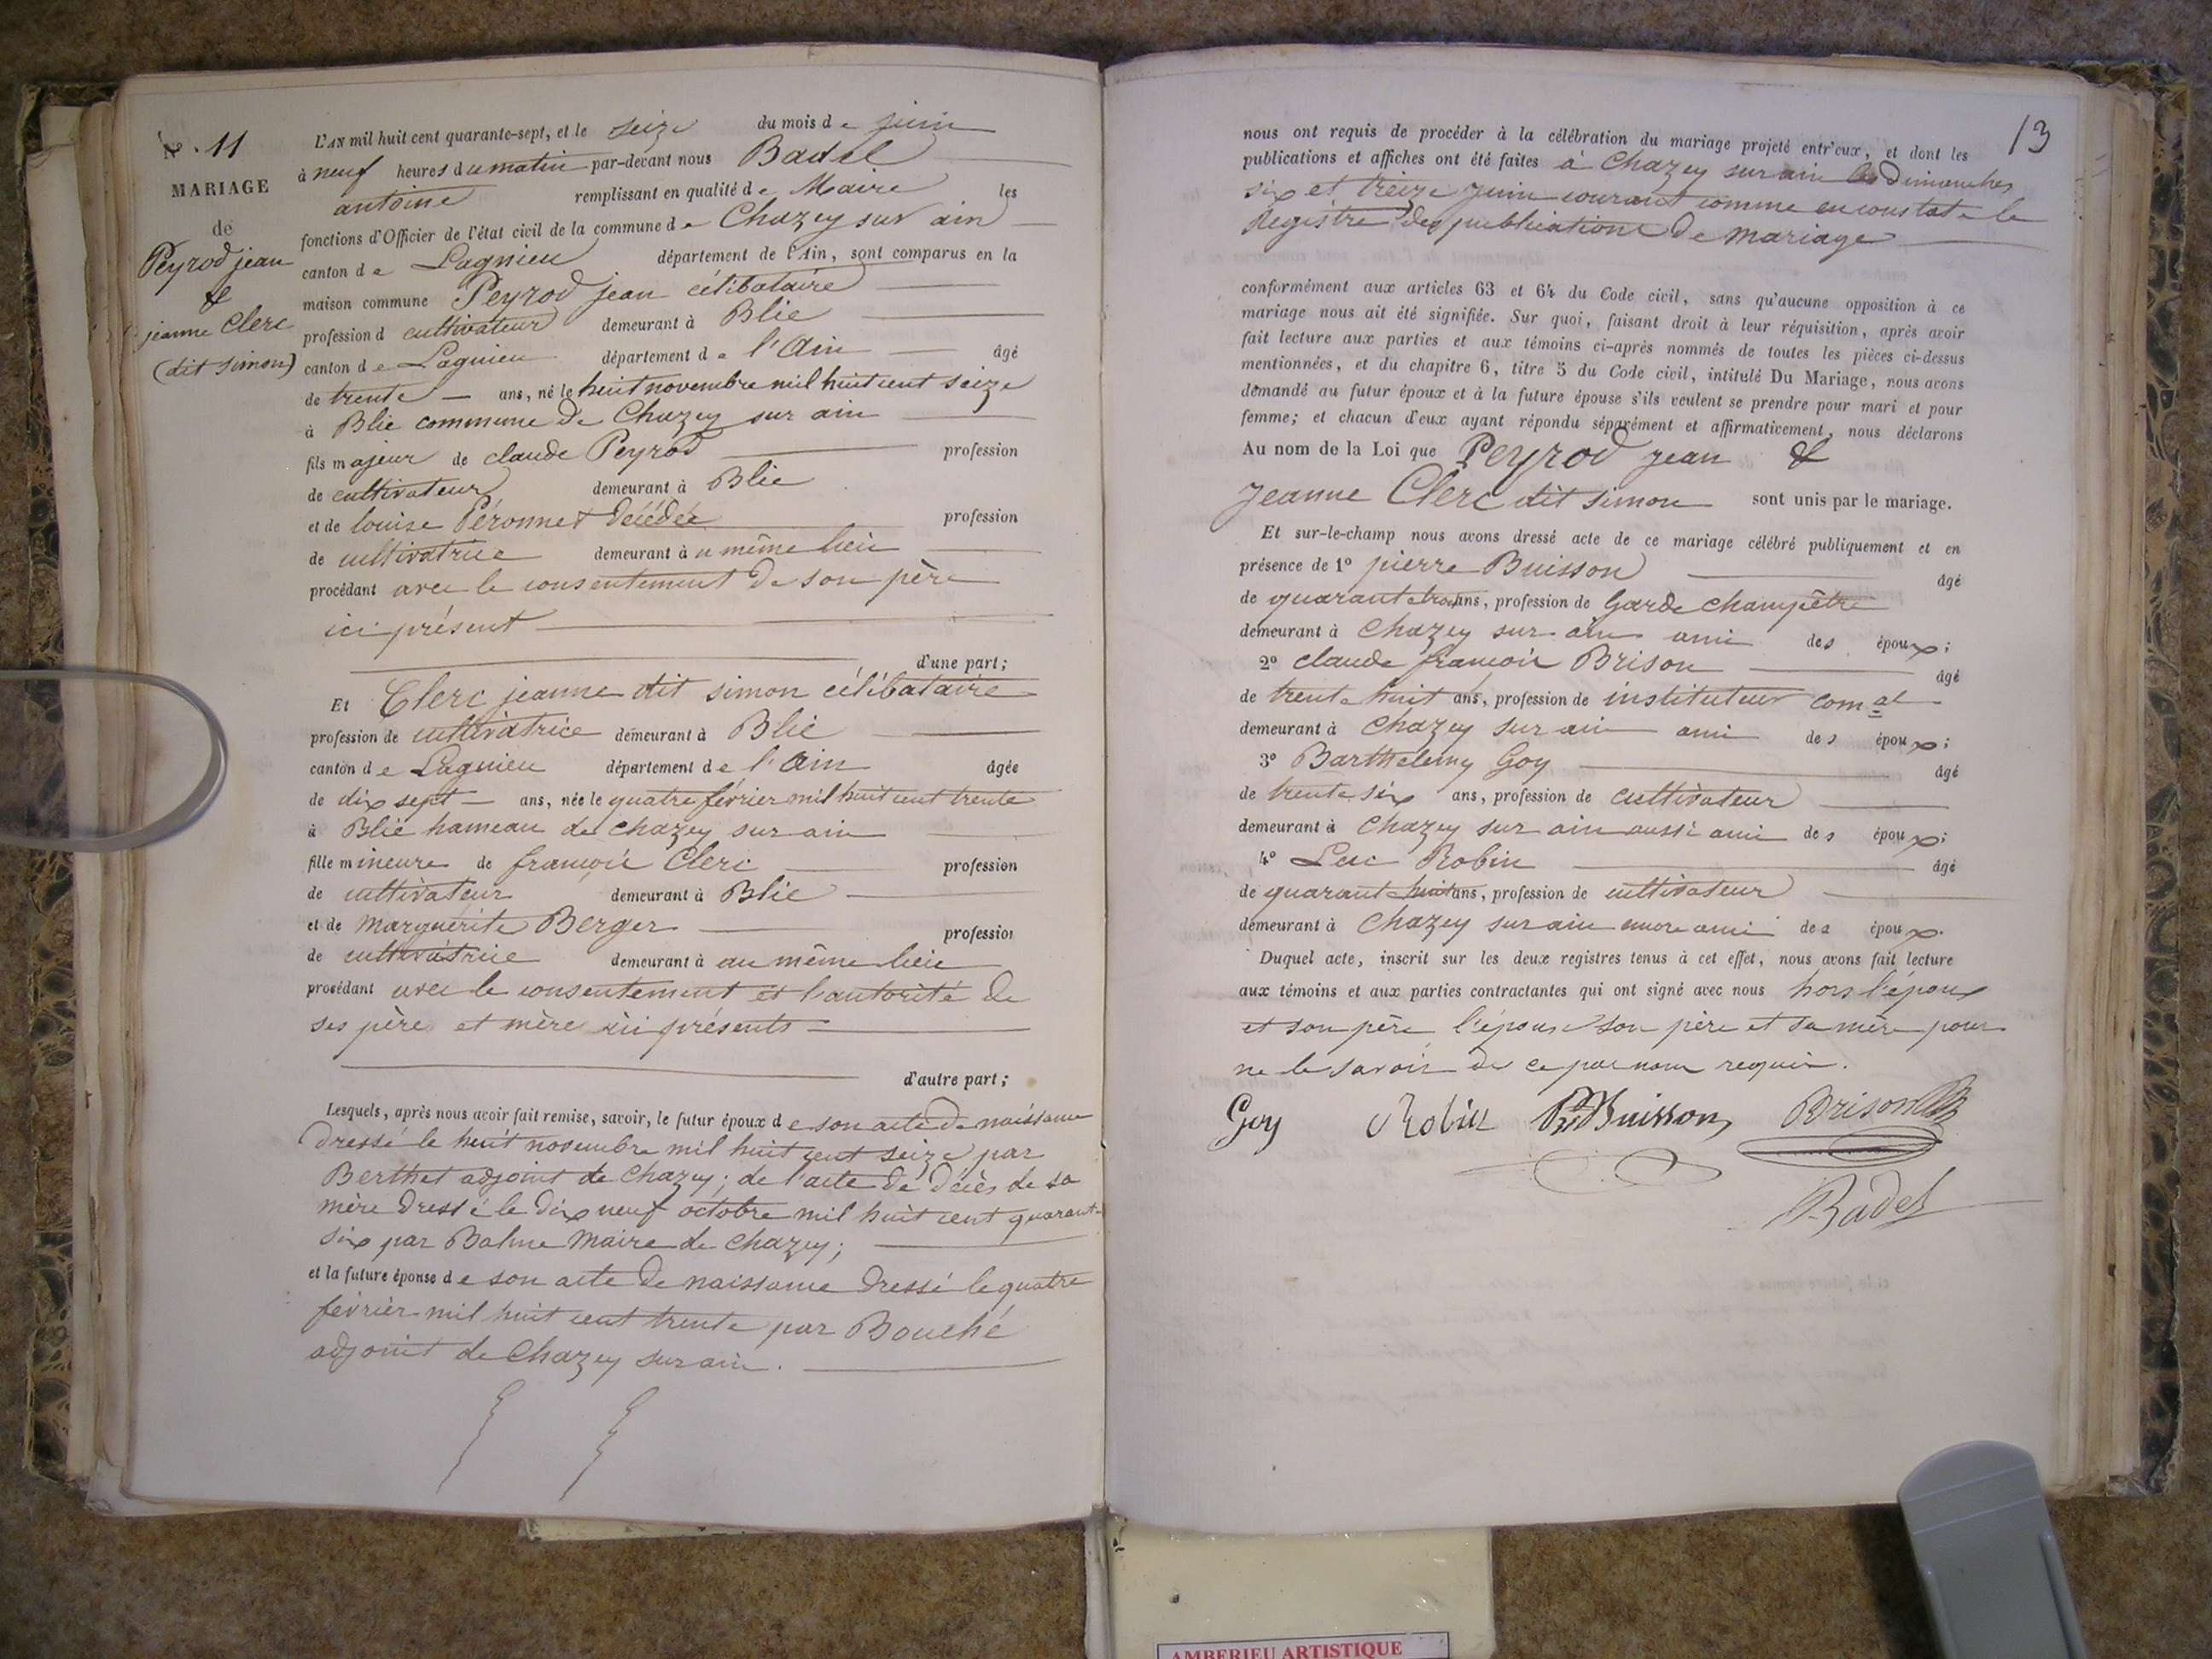 N°. 11
MARIAGE
de
Peyrod jean
&
jeanne Clerc
(dit simon)
L'AN mil huit cent quarante-sept, et le seize du mois de juin
à neuf heures du matin par-devant nous Badel
antoine remplissant en qualité de Maire les
fonctions d'Officier de l'état civil de la commune de Chazey sur ain
canton de Lagnieu département de l'Ain, sont comparus en la
maison commune Peyrod jean célibataire
profession d cultivateur demeurant à Blie
canton de Lagnieu département de l'Ain âgé
de trente ans, né le huit novembre mil huit cent seize
à Blie commune De Chazey sur ain
fils majeur de claude Peyrod profession
de cultivateur demeurant à Blie
et de louise Péronnet Décédée profession
de cultivatrice demeurant à u même lieu
procédant avec le consentement De son père
ici présent
d'une part;
Et Clerc jeanne dit simon célibataire
profession de cultivatrice demeurant à Blie
canton de Lagnieu département de l'Ain âgée
de dix sept ans, née le quatre février mil huit cent trente
à Blie hameau de chazey sur ain
fille mineure de francois Clerc profession
de cultivateur demeurant à Blie
et de Marguerite Berger profession
de cultivatrice demeurant à au même lieu
procédant avec le consentement et l'autorité de
ses père et mère ici présents
d'autre part;
Lesquels, après nous avoir fait remise, savoir, le futur époux de son acte De naissance
Dressé le huit novembre mil huit cent seize par
Berthet adjoint de Chazey; de l'acte De Décès de sa
mère Dressé le Dix neuf octobre mil huit cent quarante
six par Balme Maire de Chazey;
et la future épouse de son acte De naissance Dressé le quatre
février mil huit cent trente par Bouché
adjoint de Chazey sur ain.
13
nous ont requis de procéder à la célébration du mariage projeté entr'eux, et dont les
publications et affiches ont été faites à Chazey sur ain les Dimanches
six et treize juin courant comme en constate le
Registre Des publications De Mariage
conformément aux articles 63 et 64 du Code civil, sans qu'aucune opposition à ce
mariage nous ait été signifiée. Sur quoi, faisant droit à leur réquisition, après avoir
fait lecture aux parties et aux témoins ci-après nommés de toutes les pièces ci-dessus
mentionnées, et du chapitre 6, titre 5 du Code civil, intitulé Du Mariage, nous avons
demandé au futur époux et à la future épouse s'ils veulent se prendre pour mari et pour
femme; et chacun d'eux ayant répondu séparément et affirmativement, nous déclarons
Au nom de la Loi que Peyrod jean &
Jeanne Clerc dit simon sont unis par le mariage.
Et sur-le-champ nous avons dressé acte de ce mariage célébré publiquement et en
présence de 1° pierre Buisson âgé
de quarante trois ans, profession de Garde champêtre
demeurant à Chazey sur ain ami des époux;
2° claude francois Brison âgé
de trente huit ans, profession de instituteur comal
demeurant à Chazey sur ain ami des époux;
3° Barthelemy Goy âgé
de trente six ans, profession de cultivateur
demeurant à Chazey sur ain aussi ami des époux;
4° Luc Robin âgé
de quarante huit ans, profession de cultivateur
demeurant à Chazey sur ain encore ami des époux.
Duquel acte, inscrit sur les deux registres tenus à cet effet, nous avons fait lecture
aux témoins et aux parties contractantes qui ont signé avec nous hors l'époux
et son père l'épouse son père et sa mère pour
ne le savoir de ce par nous requis.
Goy Robin Pre Buisson Brison
Badel
AMBERIEU ARTISTIQUE